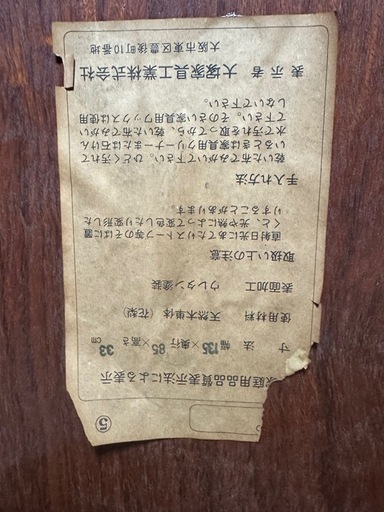 ⑤
家庭用品品質表示法による表示
寸法 幅135×奥行85×高さ33cm
使用材料 天然木単体（花梨）
表面加工 ウレタン塗装
取扱い上の注意
直射日光にあてたりストーブ等のそばに置
くと、光や熱によって変色したり変形した
りすることがあります。
手入れ方法
乾いた布でみがいて下さい。ひどく汚れて
いるときは家具用クリーナーまたは石けん
水で汚れを取ってから、乾いた布でみがい
て下さい。そのさい家具用ワックスは使用
しないで下さい。
表示者 大塚家具工業株式会社
大阪市東区豊後町10番地